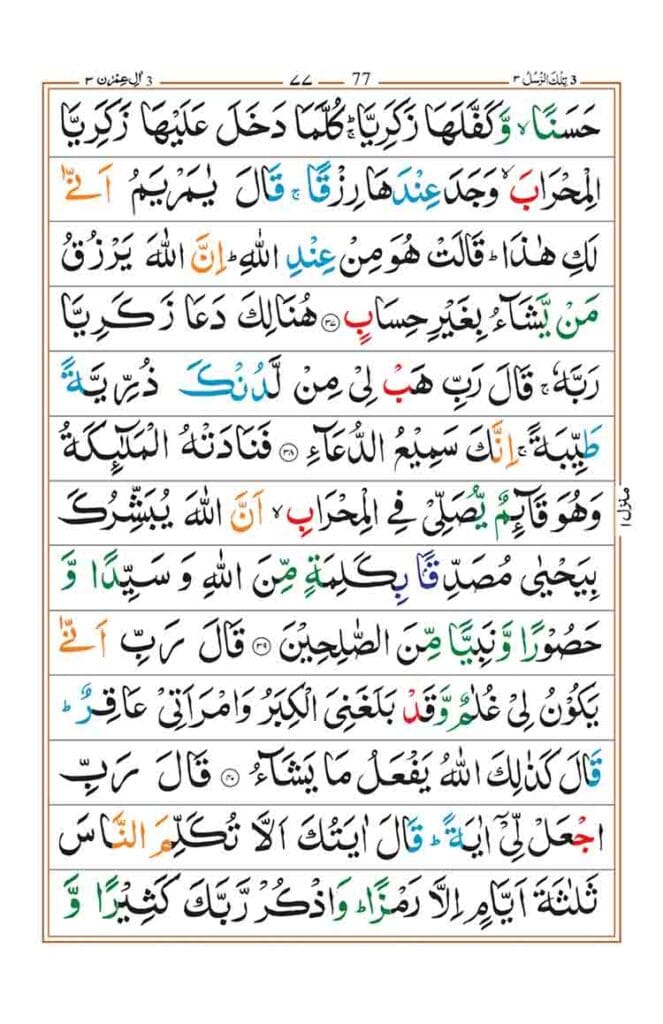 3 تِلْكَ الرُّسُلُ ٣ 77 ٧٧ 3 اٰلِ عِمْرٰن ٣
حَسَنًا ۙ وَّ كَفَّلَهَا زَكَرِيَّا ۚؕ كُلَّمَا دَخَلَ عَلَيْهَا زَكَرِيَّا
الْمِحْرَابَ ۙ وَجَدَ عِنْدَهَا رِزْقًا ۚ قَالَ يٰمَرْيَمُ اَنّٰى
لَكِ هٰذَا ؕ قَالَتْ هُوَ مِنْ عِنْدِ اللّٰهِ ؕ اِنَّ اللّٰهَ يَرْزُقُ
مَنْ يَّشَآءُ بِغَيْرِ حِسَابٍ ﴿۳۷﴾ هُنَالِكَ دَعَا زَكَرِيَّا
رَبَّهٗ ۚ قَالَ رَبِّ هَبْ لِىْ مِنْ لَّدُنْكَ ذُرِّيَّةً
طَيِّبَةً ۚ اِنَّكَ سَمِيْعُ الدُّعَآءِ ﴿۳۸﴾ فَنَادَتْهُ الْمَلٰٓئِكَةُ
وَهُوَ قَآئِمٌ يُّصَلِّىْ فِى الْمِحْرَابِ ۙ اَنَّ اللّٰهَ يُبَشِّرُكَ
بِيَحْيٰى مُصَدِّقًۢا بِكَلِمَةٍ مِّنَ اللّٰهِ وَ سَيِّدًا وَّ
حَصُوْرًا وَّنَبِيًّا مِّنَ الصّٰلِحِيْنَ ﴿۳۹﴾ قَالَ رَبِّ اَنّٰى
يَكُوْنُ لِىْ غُلٰمٌ وَّقَدْ بَلَغَنِىَ الْكِبَرُ وَامْرَاَتِىْ عَاقِرٌ ؕ
قَالَ كَذٰلِكَ اللّٰهُ يَفْعَلُ مَا يَشَآءُ ﴿۴۰﴾ قَالَ رَبِّ
اجْعَلْ لِّىْۤ اٰيَةً ؕ قَالَ اٰيَتُكَ اَلَّا تُكَلِّمَ النَّاسَ
ثَلٰثَةَ اَيَّامٍ اِلَّا رَمْزًا ؕ وَاذْكُرْ رَّبَّكَ كَثِيْرًا وَّ
منزل ١